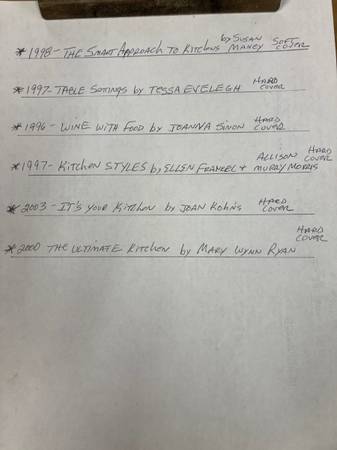 * 1998 - THE SMART APPROACH TO KITCHENS by SUSAN MANEY SOFT COVER
* 1997 - TABLE SETTINGS by TESSA EVELEGH HARD COVER
* 1996 - WINE WITH FOOD by JOANNA SIMON HARD COVER
* 1997 - KITCHEN STYLES by ELLEN FRANKEL + ALLISON MURRY MORRIS HARD COVER
* 2003 - IT'S YOUR KITCHEN by JOAN KOHNS HARD COVER
* 2000 THE ULTIMATE KITCHEN by MARY WYNN RYAN HARD COVER